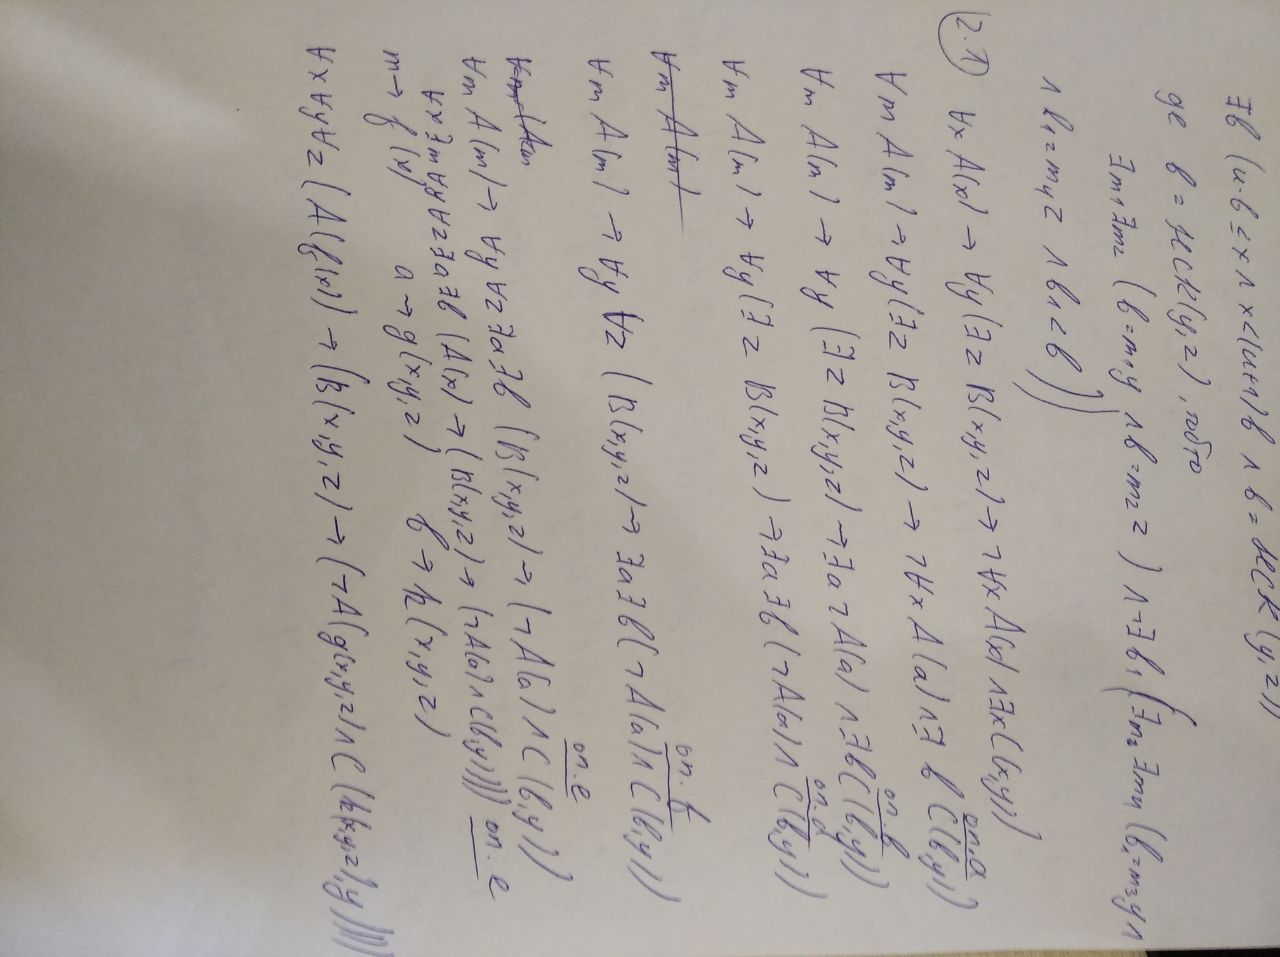 ∃b (u·b = x ∧ x < (u+1)b ∧ b = НСК(y,z))
де b = НСК(y,z), тобто
∃m₁∃m₂ (b = m₁y ∧ b = m₂z) ∧ ¬∃b₁ (∃m₃∃m₄ (b₁ = m₃y ∧
∧ b₁ = m₄z ∧ b₁ < b))
2.1) ∀x A(x) → ∀y (∃z B(x,y,z) → ¬∀x A(x) ∧ ∃x C(x,y))
∀m A(m) → ∀y (∃z B(x,y,z) → ¬∀x A(a) ∧ ∃b C(b,y)) оп. а
∀m A(m) → ∀y (∃z B(x,y,z) → ∃a ¬A(a) ∧ ∃b C(b,y)) оп. b
∀m A(m) → ∀y (∃z B(x,y,z) → ∃a∃b (¬A(a) ∧ C(b,y))) оп. d
∀m A(m)
∀m A(m) → ∀y ∀z (B(x,y,z) → ∃a∃b (¬A(a) ∧ C(b,y))) оп. b
∀m (A(m
∀m A(m) → ∀y ∀z ∃a∃b (B(x,y,z) → (¬A(a) ∧ C(b,y))) оп. e
∀x ∃m ∀y ∀z ∃a ∃b (A(x) → (B(x,y,z) → (¬A(a) ∧ C(b,y)))) оп. e
m → f(x) a → g(x,y,z) b → h(x,y,z)
∀x∀y∀z (A(f(x)) → (B(x,y,z) → (¬A(g(x,y,z) ∧ C(h(x,y,z),y)))))